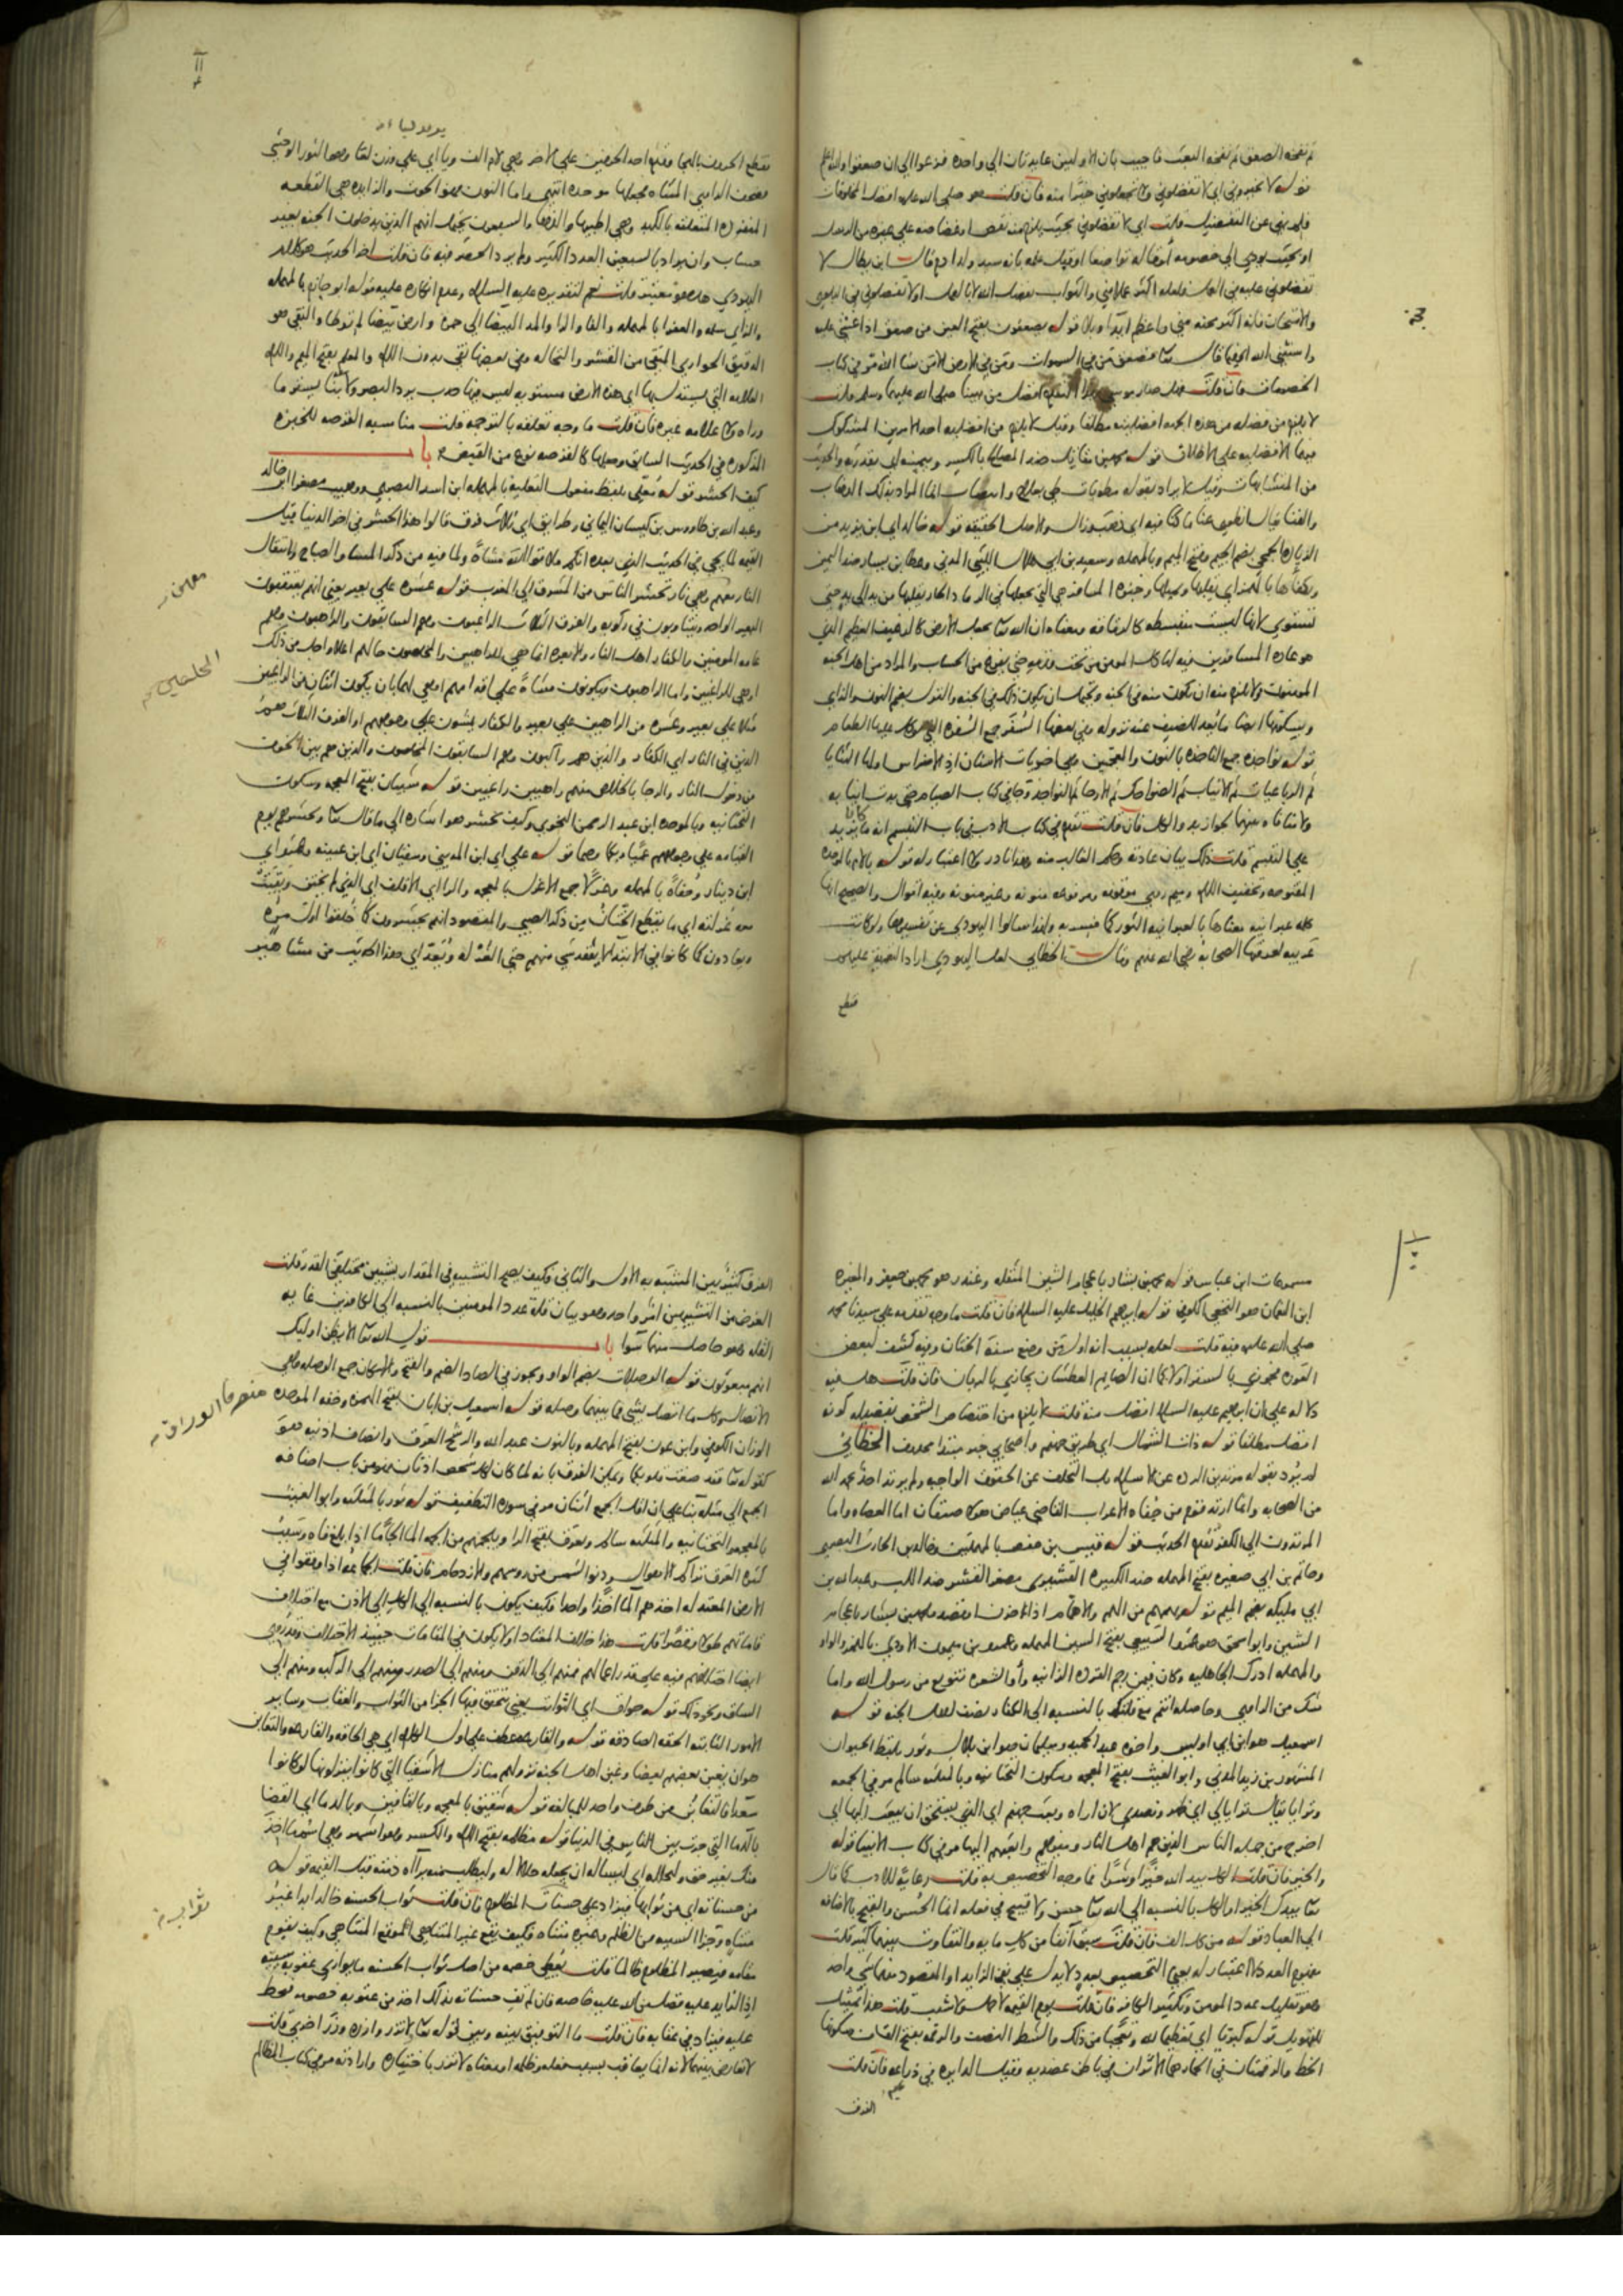 ثم نفخه الصعق ثم نفخه البعث فاجيب بان الاوليين عايدتان الي واحده فزعوا الي ان صعقوا والله اعلم
قوله لا تخيروني اي لا تفضلوني ولا تجعلوني خيرا منه فان قلت هو صلي الله عليه افضل المخلوقات
فلم نهي عن التفضيل قلت اي لا تفضلوني بحيث يلزم منه نقص او غضاضه علي غيره من الرسل
او بحيث يودي الي خصومه او قاله تواضعا او قبل علمه بانه سيد ولد ادم قال ابن بطال لا
تفضلوني عليه في العمل فلعله اكثر عملا مني والثواب بفضل الله لا بالعمل او لا تفضلوني في البلوي
والامتحان فانه اكثر محنه مني واعظم ايذا وبلا قوله يصعقون بفتح العين من صعق اذا غشي عليه
واستثني الله فيما قال تعالي فصعق من في السموات ومن في الارض الا من شا الله مر في كتاب
الخصومات فان قلت فهل صار موسي بهذا التقدم افضل من نبينا صلي الله عليهما وسلم قلت
لا يلزم من فضله من هذه الجهه افضليته مطلقا وقيل لا يلزم من افضليه احد الامرين المشكوك
فيهما الافضليه علي الاطلاق قوله محمد بن مقاتل ضد المصالح بالكسر وبيمينه اي بقدرته والحديث
من المتشابهات وقيل لا يراد بقوله مطويات طي بعلاج وانتصاب انما المراد بذلك الذهاب
والفنا يقال انطوي عنا ما كنا فيه اي ذهب وزال والاصل الحقيقه قوله خالد اي ابن يزيد من
الزياده الجمحي بضم الجيم وفتح الميم وبالمهمله وسعيد بن ابي هلال الليثي المدني وعطا بن يسار ضد اليمين
ويكفاها بالهمز اي يقلبها ويميلها وخبزه المسافر هي التي يجعلها في الرماد الحار يقلبها من يد الي يد حتي
تستوي لانها ليست منبسطه كالرقاقه ومعناه ان الله تعالي يجعل الارض كالرغيف العظيم الذي
هو عاده المسافرين فيه لياكل المومن من تحت قدميه حتي يفرغ من الحساب والمراد من اهل الجنه
المومنون ولا يلزم منه ان يكون منه في الجنه ويحتمل ان يكون ذلك في الجنه والنزل بضم النون والزاي
وبسكونها ايضا ما يعد للضيف عند نزوله وفي بعضها السفر جمع السفره التي يوكل عليها الطعام
قوله نواجذه جمع الناجذه بالنون والمعجمتين وهي اخريات الاسنان اذ الاضراس اولها الثنايا
ثم الرباعيات ثم الانياب ثم الضواحك ثم الارحا ثم النواجذ وجا في كتاب الصيام حتي بدت انيابه
ولا منافاه بينهما لجواز بدو الكل فان قلت تقدم في كتاب الادب في باب التبسم انه ما كان يزيد
علي التبسم قلت ذلك بيان عادته وحكم الغالب منه وهذا نادر ولا اعتبار له قوله بالام بالموحده
المفتوحه وتخفيف اللام وميم روي موقوفه ومرفوعه منونه وغير منونه وفيه اقوال والصحيح انها
كلمه عبرانيه معناها بالعبرانيه الثور كما فسر به ولهذا سالوا اليهودي عن تفسيرها ولو كانت
عربيه لعرفتها الصحابه رضي الله عنهم وقال الخطابي لعل اليهودي اراد التعميه عليهم
فقطع
فقطع الحروف بالهجا وقدم احد الحرفين علي الاخر وهي لام الف ويا اي علي وزن لقا وهو الثور الوحشي
فصحف الراوي المثناه فجعلها موحده انتهي واما النون فهو الحوت والزايده هي القطعه
المنفرده المتعلقه بالكبد وهي اطيبها والذها والسبعون يحتمل انهم الذين يدخلون الجنه بغير
حساب وان يراد بالسبعين العدد الكثير ولم يرد الحصر فيه فان قلت اخر الحديث هو كلام
اليهودي هل هو معتبر قلت نعم لتقديره عليه السلام وعدم انكاره عليه قوله ابو حازم بالمهمله
والزاي سلمه والعفرا بالمهمله والفا والرا والمد البيضا الي حمره وارض بيضا لم توطا والنقي هو
الدقيق الحواري المنقي من القشر والنخاله وفي بعضها نقي بدون اللام والمعلم بفتح الميم واللام
العلامه التي يستدل بها اي هذه الارض مستويه ليس فيها حدب يرد البصر ولا بنا يستر ما
وراه ولا علامه غيره فان قلت ما وجه تعلقه بالترجمه قلت مناسبه القرصه للخبزه
المذكوره في الحديث السابق وجعلها كالقرصه نوع من القبض باب
كيف الحشر قوله معلي بلفظ مفعول التعليه بالمهمله ابن اسد البصري ووهيب مصغرا ابن خالد
وعبد الله بن طاووس بن كيسان اليماني وطرايق اي ثلاث فرق قالوا هذا الحشر في اخر الدنيا قبيل
القيمه لما يجي في الحديث الذي بعده انكم ملاقوا الله مشاه ولما فيه من ذكر المسا والصباح وانتقال
النار معهم وهي نار تحشر الناس من المشرق الي المغرب قوله عشره علي بعير يعني انهم يعتقبون
البعير الواحد ويتناوبون في ركوبه والفرق الثلاث الراغبون وهم السابقون والراهبون وهم
عامه المومنين والكفار اهل النار والابعره انما هي للراهبين والمخلصون حالهم اعلا واجل من ذلك
او هي للراغبين واما الراهبون فيكونون مشاه علي اقدامهم او هي لهما بان يكون اثنان من الراغبين
مثلا علي بعير وعشره من الراهبين علي بعير والكفار يمشون علي وجوههم او الفرق الثلاث هم
الذين في النار اي الكفار والذين هم راكبون وهم السابقون المخلصون والذين هم بين الخوف
من دخول النار والرجا بالخلاص منهم راهبين راغبين قوله شيبان بفتح المعجمه وسكون
التحتانيه وبالموحده ابن عبد الرحمن النحوي وكيف نحشر هو اشاره الي ما قال تعالي ونحشرهم يوم
القيامه علي وجوههم عميا وبكما وصما قوله علي اي ابن المديني وسفيان اي ابن عيينه وعمرو اي
ابن دينار وحفاه بالمهمله وغرلا جمع الاغرل بالمعجمه والرا اي الاقلف اي الذي لم يختن وبقيت
معه غرلته اي ما يقطع الختان من ذكر الصبي والمقصود انهم يحشرون كما خلقوا اول مره
ويعادون كما كانوا في الابتدا لا يفقد شي منهم حتي الغرله ويعد اي هذا الحديث من مشاهير
مسموعات ابن عباس قوله محمد بن بشار باعجام الشين المثقله وغندر هو محمد بن جعفر والمغيره
ابن النعمان هو النخعي الكوفي قوله ابرهيم الخليل عليه السلام فان قلت ما وجه تقدمه علي سيدنا محمد
صلي الله عليه فيه قلت لعله بسبب انه اول من وضع سنه الختان وفيه كشف لبعض
العوره فجوزي بالستر اولا كما ان الصايم العطشان يجازي بالريان فان قلت هل فيه
دلاله علي ان ابراهيم عليه السلام افضل منه قلت لا يلزم من اختصاص الشخص بفضيله كونه
افضل مطلقا قوله ذات الشمال اي طريق جهنم واصحابي خبر مبتدا محذوف الخطابي
لم يرد بقوله مرتدين الرده عن الاسلام بل التخلف عن الحقوق الواجبه ولم يرتد احد بحمد الله
من الصحابه وانما ارتد قوم من جفاه الاعراب القاضي عياض هولا صنفان اما العصاه واما
المرتدون الي الكفر تقدم الحديث قوله قيس بن حفص بالمهملتين وخالد بن الحارث البصري
وحاتم بن ابي صغيره بفتح المهمله ضد الكبيره القشيري مصغر القشر ضد اللب وعبد الله بن
ابي مليكه بضم الميم قوله يهمهم من الهم والاهمام اذا احزن او قصد محمد بن بشار باعجام
الشين وابو اسحق هو عمرو السبيعي بفتح السين المهمله وعمرو بن ميمون الاودي بالهمز والواو
والمهمله ادرك الجاهليه وكان فيمن رجم القرده الزانيه واو الشعره تنويع من رسول الله واما
شك من الراوي وحاصله انتم مع قلتكم بالنسبه الي الكفار نصف اهل الجنه قوله
اسمعيل هو ابن ابي اويس واخوه عبد الحميد وسليمان هو ابن بلال وثور بلفظ الحيوان
المشهور بن زيد المدني وابو الغيث بفتح المعجمه وسكون التحتانيه وبالمثلثه سالم مر في الجمعه
وترايا يقال ترايا لي اي ظهر وتصدي لان اراه وبعث جهنم اي الذي يستحق ان يبعث اليها اي
اخرج من جمله الناس الذين هم اهل النار وميزهم وابعثهم اليها مر في كتاب الانبيا قوله
والخير فان قلت الكل بيد الله خيرا وشرا فما وجه التخصيص به قلت رعايه للادب كما قال
تعالي بيدك الخير او الكل بالنسبه الي الله تعالي حسن ولا قبيح في فعله انما الحسن والقبح بالاضافه
الي العباد قوله من كل الف فان قلت سبق انفا من كل مايه والتفاوت بينهما كثير قلت
مفهوم العدد لا اعتبار له يعني التخصيص بعدد لا يدل علي نفي الزايد او المقصود منهما شي واحد
وهو تقليل عدد المومن وتكثير الكافر فان قلت يوم القيمه لا حمل ولا شيب قلت هذا تمثيل
للتهويل قوله كبرنا اي تعظيما لله وتعجبا من ذلك والشطر النصف والرقمه بفتح القاف وسكونها
الخط والرقمتان في الحمار هما الاثران في باطن عضديه وقيل الدايره في ذراعه فان قلت
الفرق
الفرق كثير بين المشبه به الاول والثاني وكيف يصح التشبيه في المقدار بشيين مختلفي القدر قلت
الغرض من التشبيهين امر واحد وهو بيان قله عدد المومنين بالنسبه الي الكافرين غايه
القله وهو حاصل منهما سوا باب قول الله تعالي الا يظن اوليك
انهم مبعوثون قوله الوصلات بضم الواو ويجوز في الصاد الضم والفتح والاسكان جمع الوصله وهي
الاتصال وكل ما اتصل بشي فما بينهما وصله قوله اسمعيل بن ابان بفتح الهمزه وخفه الموحده منصرفا
الوراق الكوفي وابن عون بفتح المهمله وبالنون عبد الله والرشح العرق وانصاف اذنيه هو
كقوله تعالي فقد صغت قلوبكما ويمكن الفرق بانه لما كان لكل شخص اذنان فهو من باب اضافه
الجمع الي مثله بنا علي ان اقل الجمع اثنان مر في سوره التطفيف قوله ثور بالمثلثه وابو الغيث
بالمعجمه والتحتانيه والمثلثه سالم ويعرق بفتح الرا ويلجمهم من الجمه الما الجاما اذا بلغ فاه وسبب
كثره العرق تراكم الاهوال ودنو الشمس من روسهم والازدحام فان قلت الجماعه اذا وقفوا في
الارض المعتدله اخذهم الما اخذا واحدا فكيف يكون بالنسبه الي الكل الي الاذن مع اختلاف
قاماتهم طولا وقصرا قلت هذا خلاف المعتاد او لا يكون في القامات حينيذ الاختلاف وقد روي
ايضا اختلافهم فيه علي قدر اعمالهم فمنهم الي الذقن ومنهم الي الصدر ومنهم الي الركبه ومنهم الي
الساق ونحو ذلك قوله حواق اي الثوابت يعني يتحقق فيها الجزا من الثواب والعقاب وساير
الامور الثابته الحقه الصادقه قوله والقارعه عطف علي اول الكلام اي هي الحاقه والقارعه والتغابن
هو ان يغبن بعضهم بعضا وغبن اهل الجنه نزولهم منازل الاشقيا التي كانوا ينزلونها لو كانوا
سعدا فالتغابن من طرف واحد للمبالغه قوله شقيق بالمعجمه وبالقافين وبالدما اي القضا
بالدما التي جرت بين الناس في الدنيا قوله مظلمه بفتح اللام والكسر وهو اشهر وهي اسم ما اخذ
منك بغير حق وليتحلله اي ليساله ان يجعله حلالا له وليطلب منه براه ذمته قبل القيمه قوله
من حسناته اي من ثوابها فيزاد علي حسنات المظلوم فان قلت ثواب الحسنه خالد ابدا غير
متناه وجزا السييه من الظلم وغيره متناه فكيف يقع غير المتناهي موقع المتناهي وكيف يقوم
مقامه فيصير المظلوم ظالما قلت يعطي خصمه من اصل ثواب الحسنه ما يوازي عقوبه سيته
اذ الزايد عليه فضل من الله عليه خاصه فان لم تف حسناته بذلك اخذ من عقوبه خصومه فحط
عليه فيزاد في عقابه فان قلت ما التوفيق بينه وبين قوله تعالي ولا تزر وازره وزر اخري قلت
لا تعارض بينهما لانه انما يعاقب بسبب فعله وظلمه او معناه لا تزر باختياره وارادته مر في كتاب المظالم